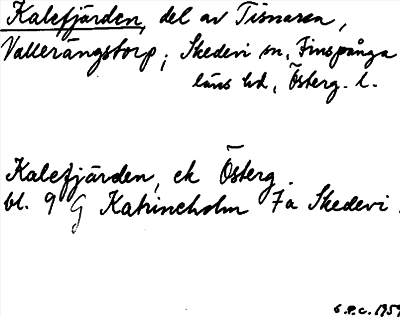 Kalefjärden, del av Tisnaren,
Vallerängstorp, Skedevi sn, Finspånga
läns hd, Österg. l.
Kalefjärden, ek Österg.
bl. 9 G Katrineholm 7a Skedevi.
S.P.C. 1959